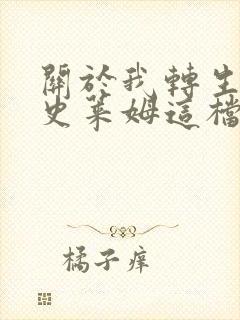 關於我轉生
史萊姆這檔
橘子痒